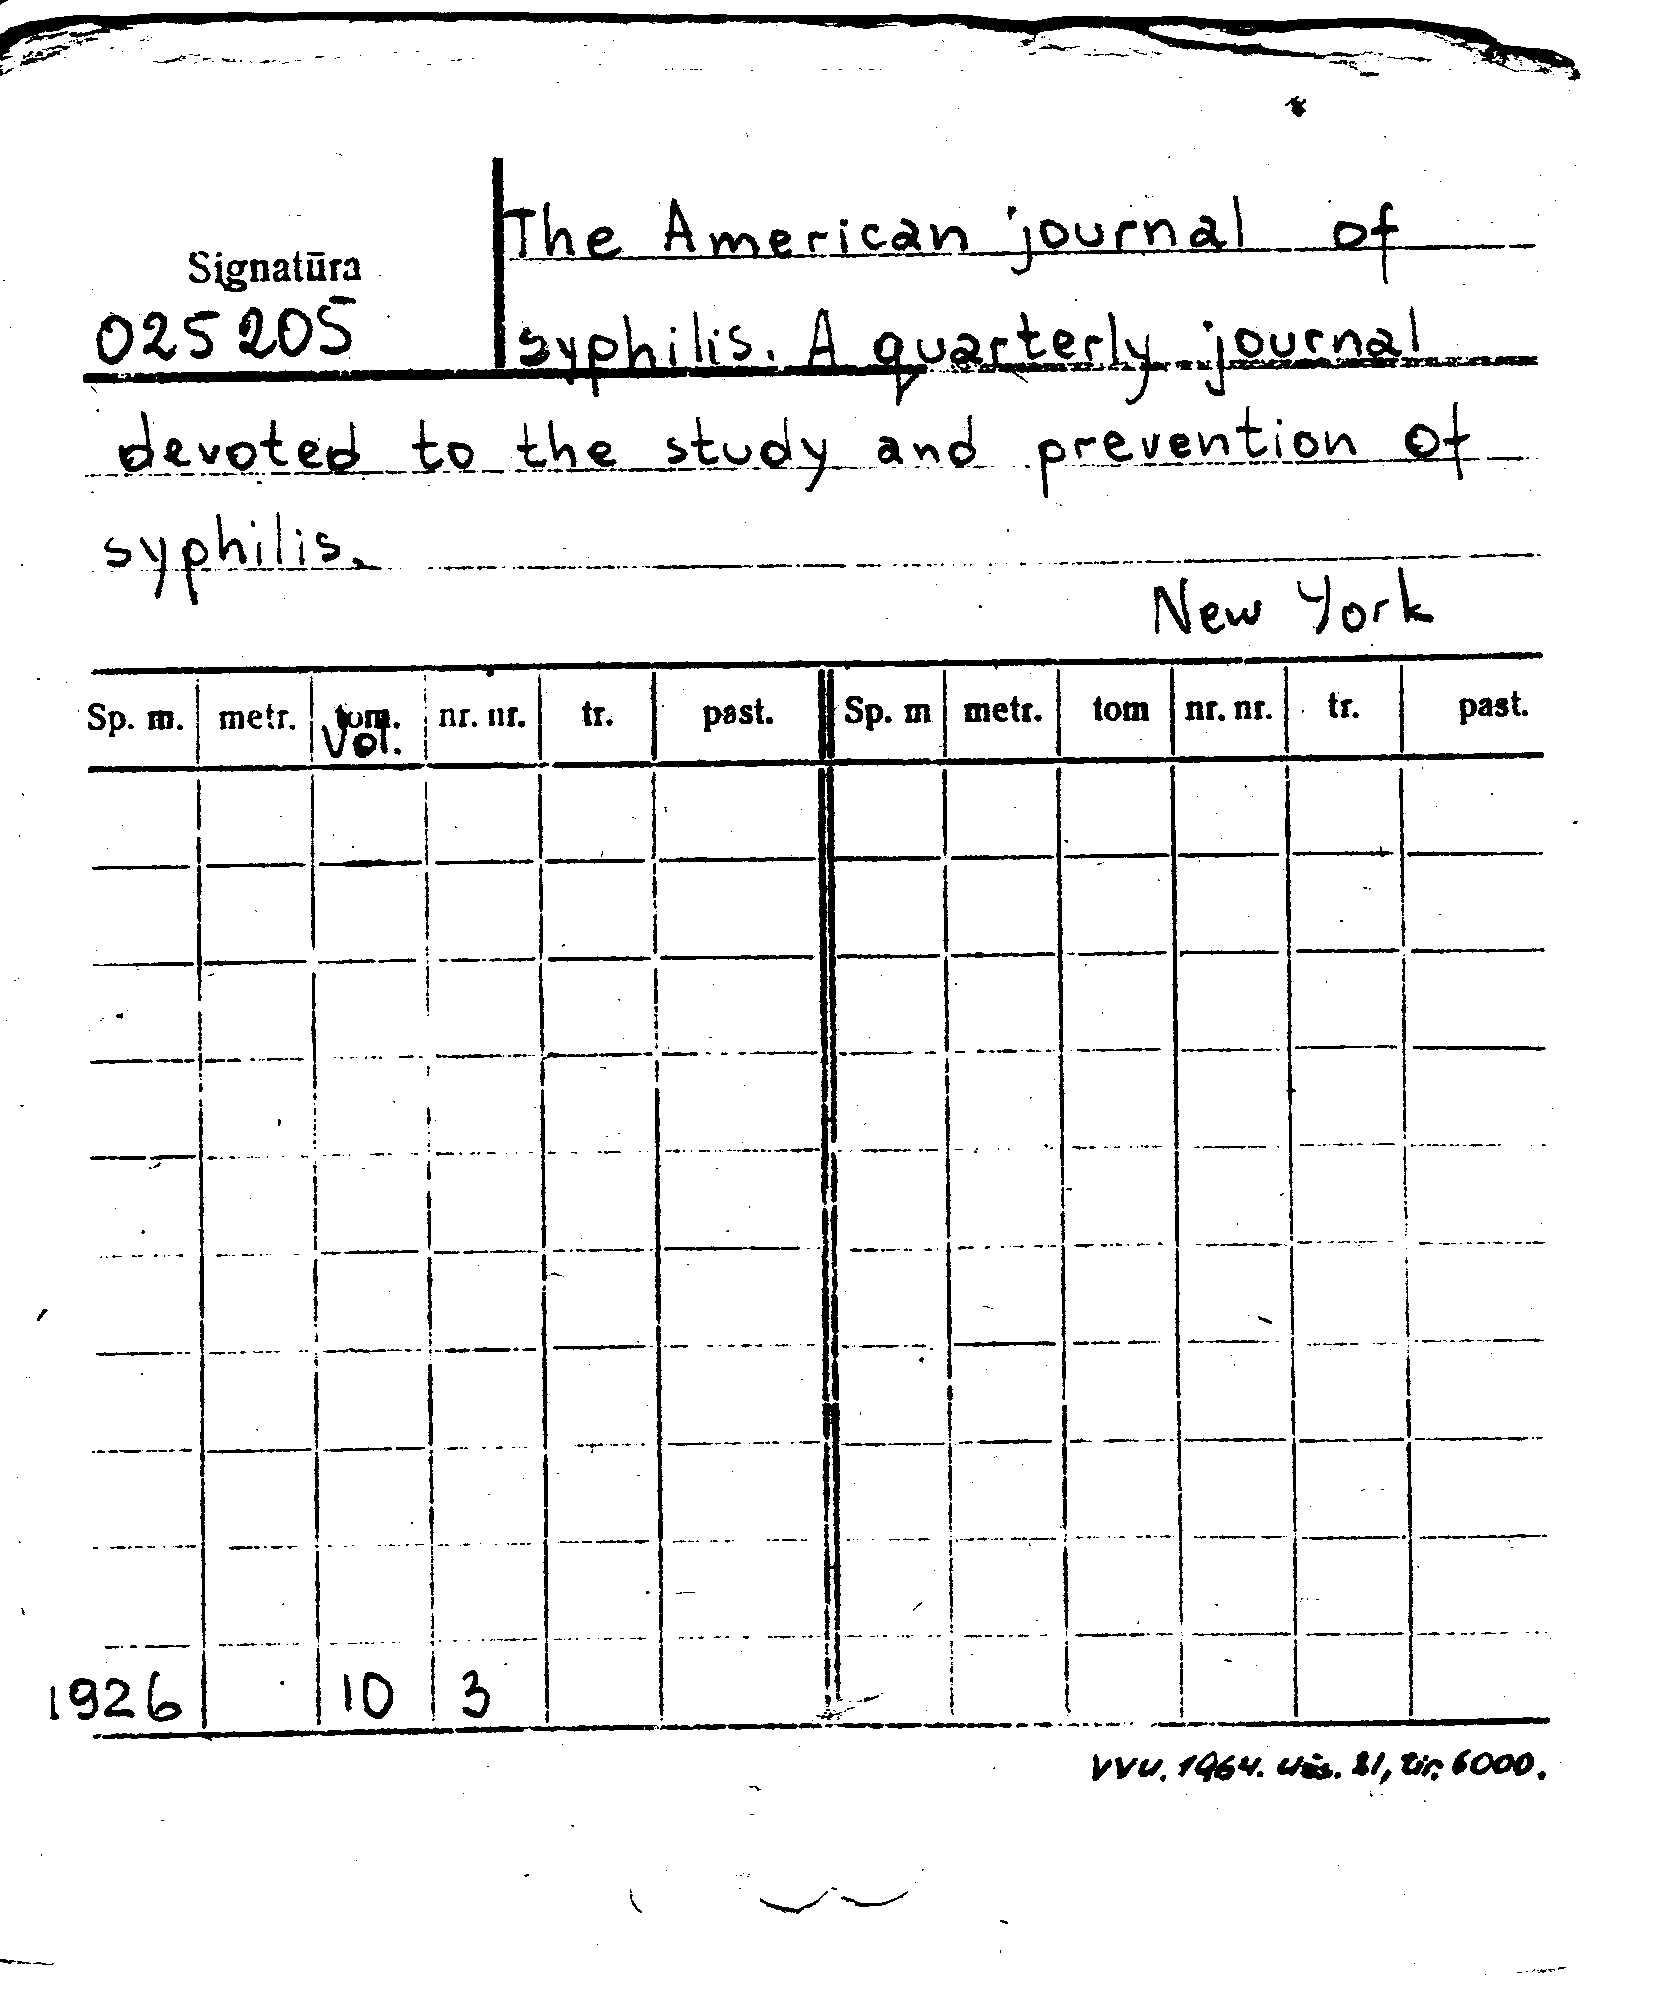 The American journal of
Signatūra
025205
syphilis. A quarterly journal
devoted to the study and prevention of
syphilis.
New York
Sp. m. metr. tom. nr. nr. tr. past. Sp. m metr. tom nr. nr. tr. past.
Vol.
1926 10 3
VVU. 1964. Užs. 81, tir. 6000.